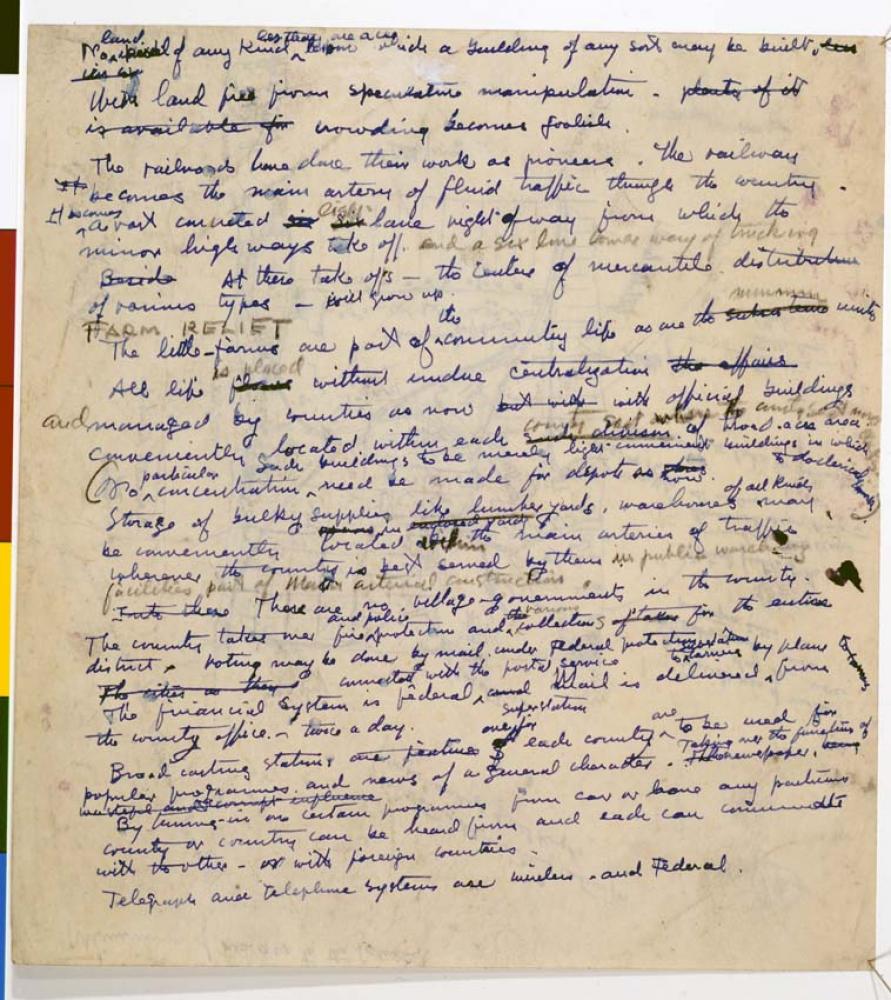 land less than an acre
No of any kind, upon which a building of any sort may be built.
With land free from speculative manipulation - plenty of it
is available for crowding becomes foolish.
The railroads have done their work as pioneers. The railway
becomes the main artery of fluid traffic through the country.
It becomes eight
a vast concreted six lane right of way from which the
minor highways take off. and a six lane lower way of trucking
Beside At these take offs - the centers of mercantile distribution
of various types - will grow up.
the minimum
FARM RELIEF
The little-farms are part of community life as are the units
is placed
All life without undue centralization the affairs
and managed by counties as now but with with official buildings
county seat where the
conveniently located within each such division of broad acre area
Such buildings to be merely buildings in which
particular to do clerical work
(No concentration, need be made for depots as now
of all kinds
Storage of bulky supplies like lumber yards, warehouses may
be conveniently located within the main arteries of traffic
wherever the county is best served by them in public warehousing
facilities part of Main arterial construction.
Into these There are no village-governments in the county.
and police the various
The county takes over fire protection and collections of taxes for the entire
district. Voting may be done by mail under Federal protection
connected with the postal service by plane to
The cities as they Mail is delivered, from
The financial system is federal, and
superstation
the county office. - twice a day.
one for are for
Broadcasting stations are features of each county to be used
Taking over the functions of
popular programmes and news of a general character. The newspaper, being
wasteful and corrupt influence
By tuning-in on certain programmes from car or home any particular
county or country can be heard from and each can communicate
with the other - or with foreign countries.
Telegraph and telephone systems are wireless - and Federal.